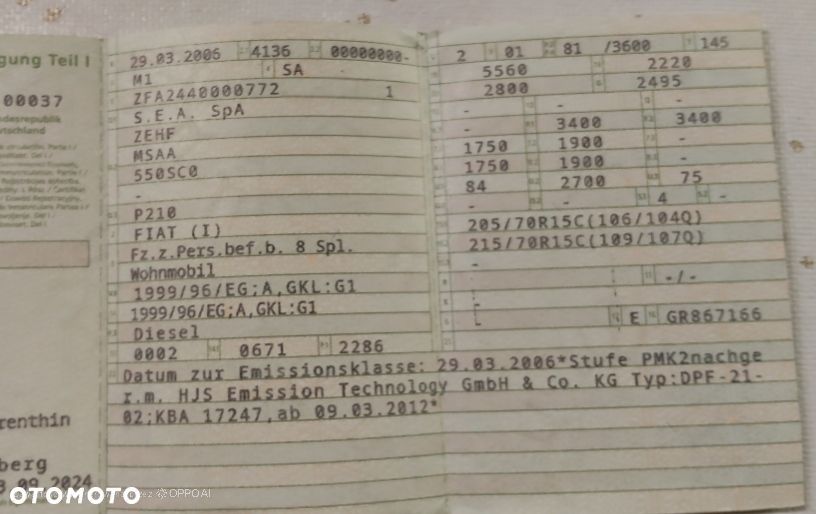 gung Teil I
00037
desrepublik
utschland
29.03.2006 4136 00000000-
M1 SA
ZFA2440000772 1
S.E.A. SpA
ZEHF
MSAA
550SC0
-
P210
FIAT (I)
Fz.z.Pers.bef.b. 8 Spl.
Wohnmobil
1999/96/EG;A,GKL:G1
1999/96/EG;A,GKL:G1
Diesel
0002 0671 2286
2 01 81 /3600 145
5560 2220
2800 2495
- - -
- 3400 3400
1750 1900 -
1750 1900 -
84 2700 75
- - 4 -
205/70R15C(106/104Q)
215/70R15C(109/107Q)
-
-/-
E GR867166
Datum zur Emissionsklasse: 29.03.2006*Stufe PMK2nachge
r.m. HJS Emission Technology GmbH & Co. KG Typ:DPF-21-
02;KBA 17247,ab 09.03.2012*
renthin
berg
09.2024
OTOMOTO
OPPO AI